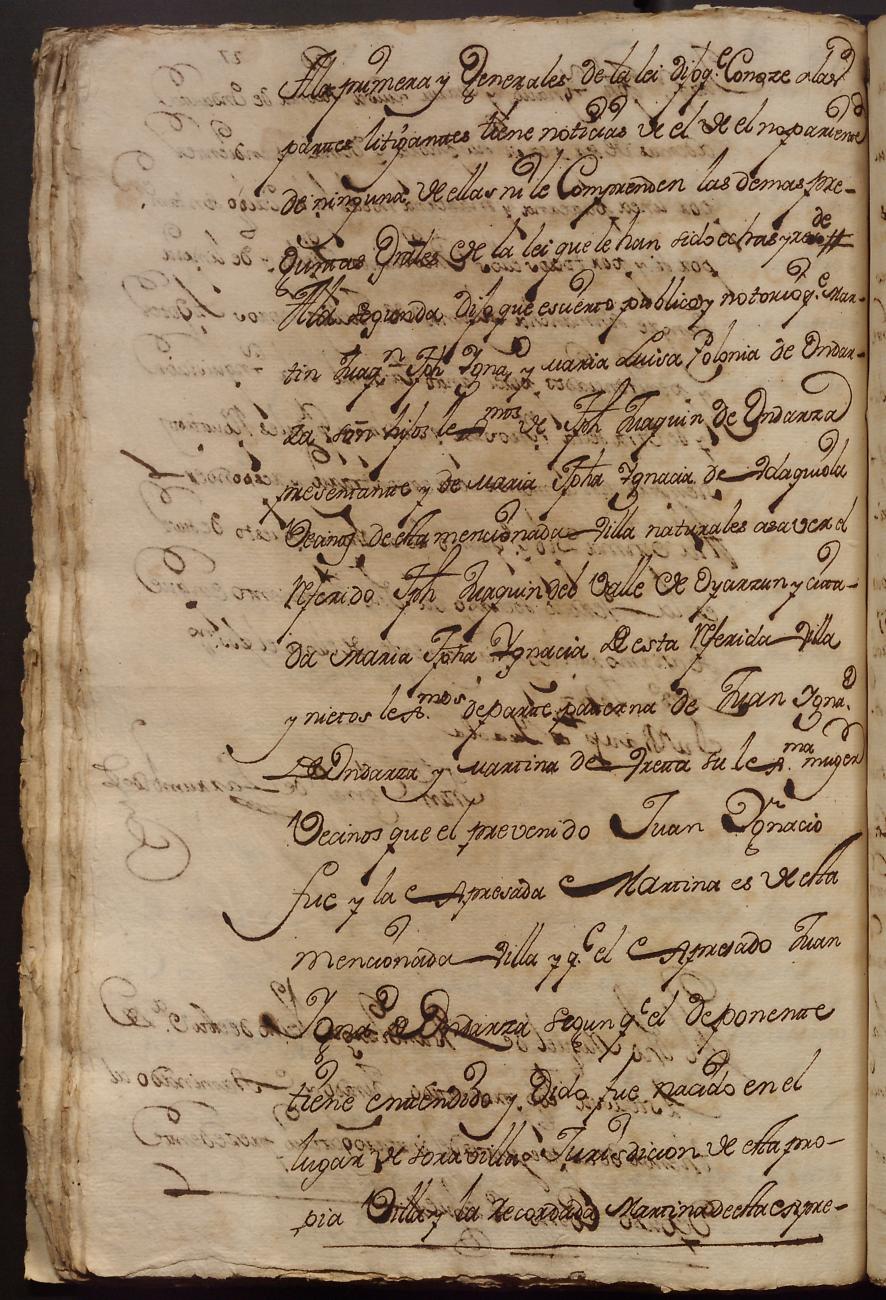 A la primera y Generales de la lei dijo q.e Conoze a las
partes litigantes tiene noticias de el de el no pariente
de ninguna de ellas ni le Comprenden las demas pre-
guntas Grales de la lei que le han sido echas y resde
A la Segunda dijo que es cierto publico y notorio q.e Mar-
tin Juaq.n Jph Igna.o y Maria Luisa Polonia de Undar-
za son hijos lex.mos de Jph Juaquin de Undarza
presentante y de Maria Jpha Ygnacia de Idaquiola
Vecinos de esta mencionada Villa naturales asaver el
referido Jph Juaquin del Valle de Oyarzun y cita-
da Maria Jpha Ygnacia de esta referida Villa
y nietos lex.mos de parte paterna de Juan Igna.o
de Undarza y Martina de Yretta su lex.ma muger
Vecinos que el prevenido Juan Ygnacio
fue y la expresada Martina es de esta
mencionada Villa y q.e el expresado Juan
Igna.o de Undarza segun q.e el deponente
tiene entendido y oido fue nacido en el
lugar de soravilla Jurisdicion de esta pro-
pia Villa y la recordada Martina de esta expre-